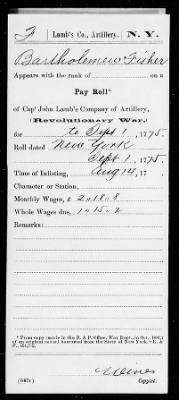 F | Lamb's Co., Artillery. | N. Y.
Bartholemew Fisher
Appears with the rank of on a
Pay Roll*
of Capt John Lamb's Company of Artillery,
(Revolutionary War,)
for to Sept 1, 1775.
Roll dated New York
Sept 1, 1775.
Time of Inlisting, Aug 14, 17
Character or Station,
Monthly Wages, £ 2 " 18 " 8
Whole Wages due, 1 " 15 " 2
Remarks:
* From copy made in the R. & P. Office, War Dept., in Oct.,
of an original record borrowed from the State of New York—R. &
P.
Copyist.